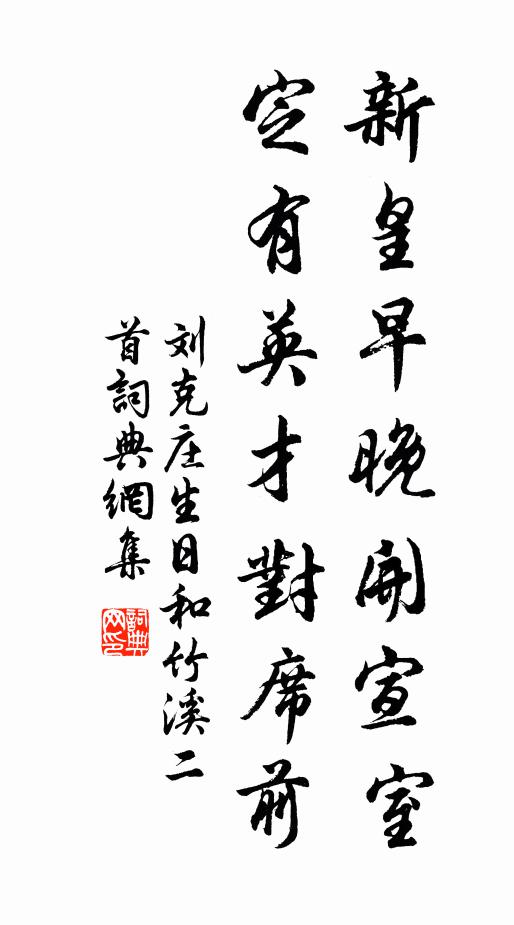 新皇早晚開宣室
定有英才對席前
刘克庄生日和竹溪二
首詞典網集
詞典
网印